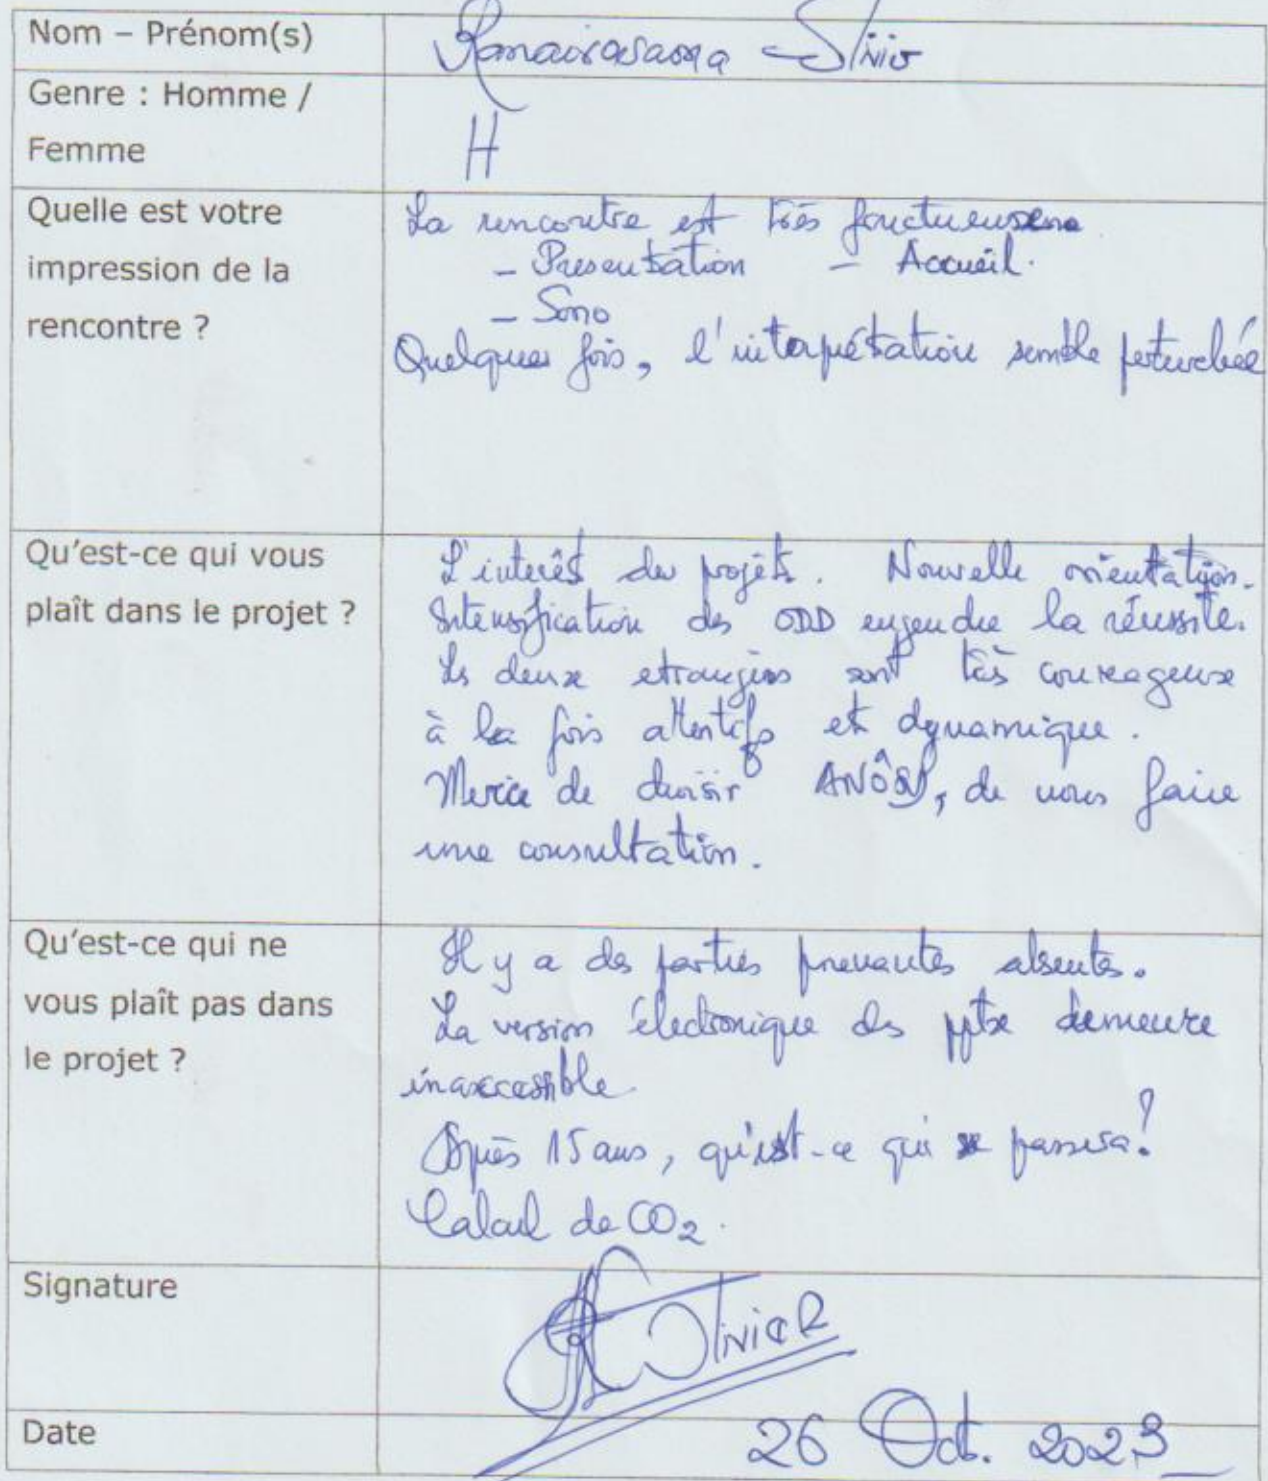 Nom – Prénom(s)
Genre : Homme /
Femme
H
Quelle est votre
impression de la
rencontre ?
La rencontre est très
- Presentation - Accueil.
- Sono
Quelques fois, l'interpétation semble perturbée
Qu'est-ce qui vous
plaît dans le projet ?
L'interêt des projets. Nouvelle orientation.
Intensification des ODD engendre la réussite.
Les deux etrangers sont très courageux
à la fois attentifs et dynamique.
de choisir de nous faire
une consultation.
Qu'est-ce qui ne
vous plaît pas dans
le projet ?
Il y a des parties prenantes absentes.
La version électronique des pptx demeure
inaccessible
Après 15 ans, qu'est-ce qui se passera?
Calcul de CO2.
Signature
OliviER
Date
26 Oct. 2023